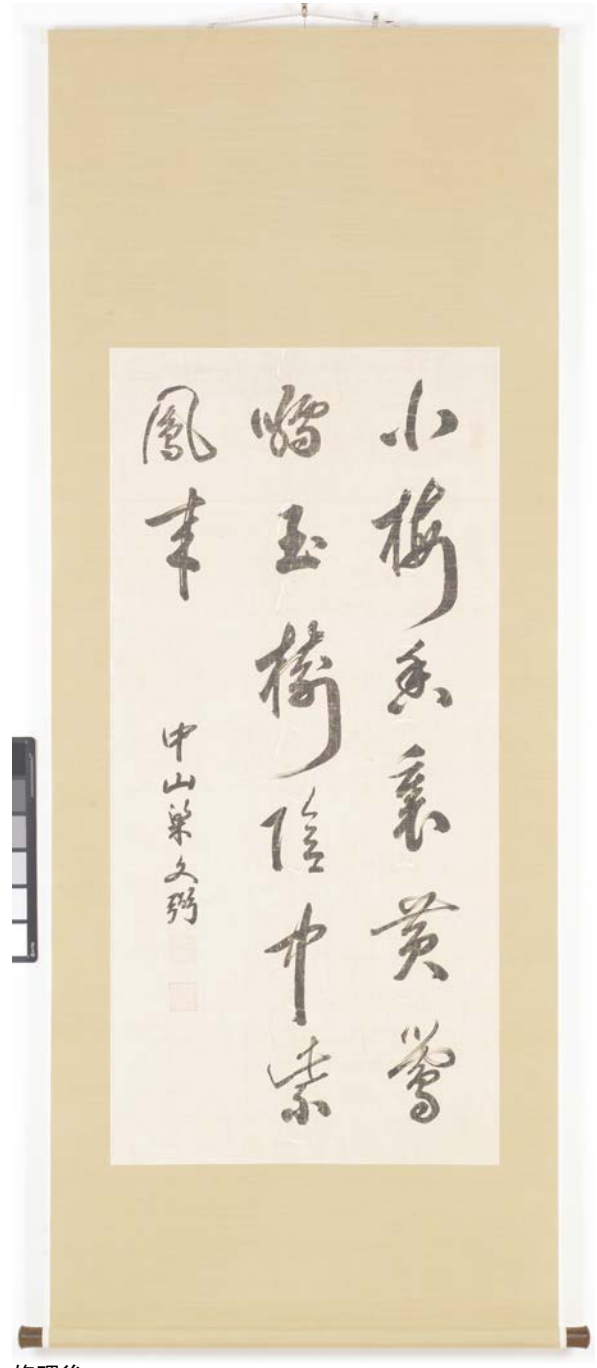 小梅香裏黄鶯
囀玉樹陰中紫
鳳来
中山梁文弼
修理後